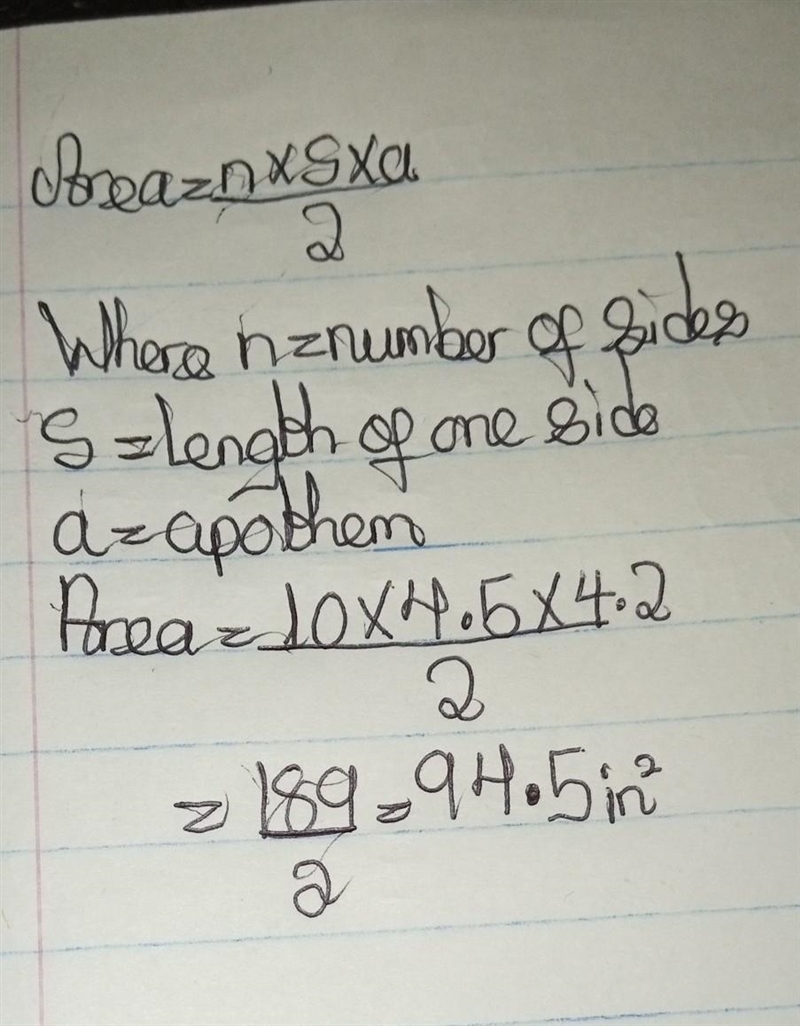 Area = n x s x a
2
Where n = number of sides
S = length of one side
a = apothem
Area = 10 x 4.5 x 4.2
2
= 189 = 94.5 in²
2